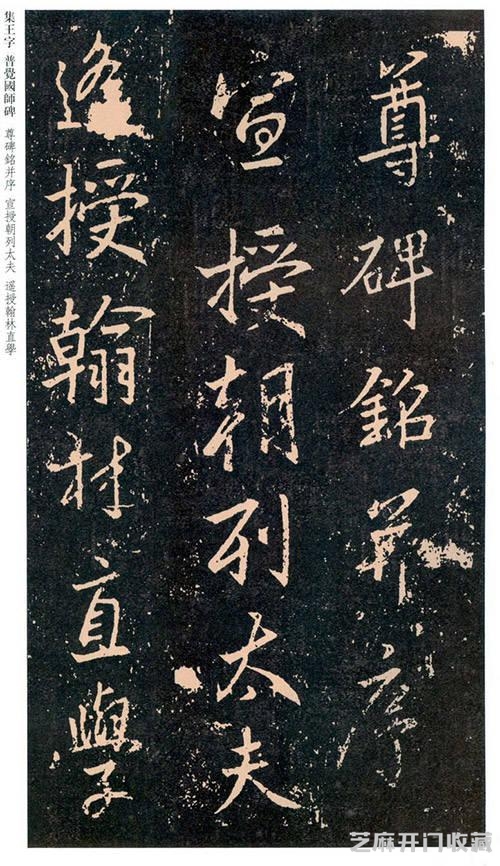 尊碑銘并序
宣授朝列太夫
遙授翰林直學
集王字 普覺國師碑 尊碑銘并序 宣授朝列太夫 遥授翰林直學
芝麻开门收藏